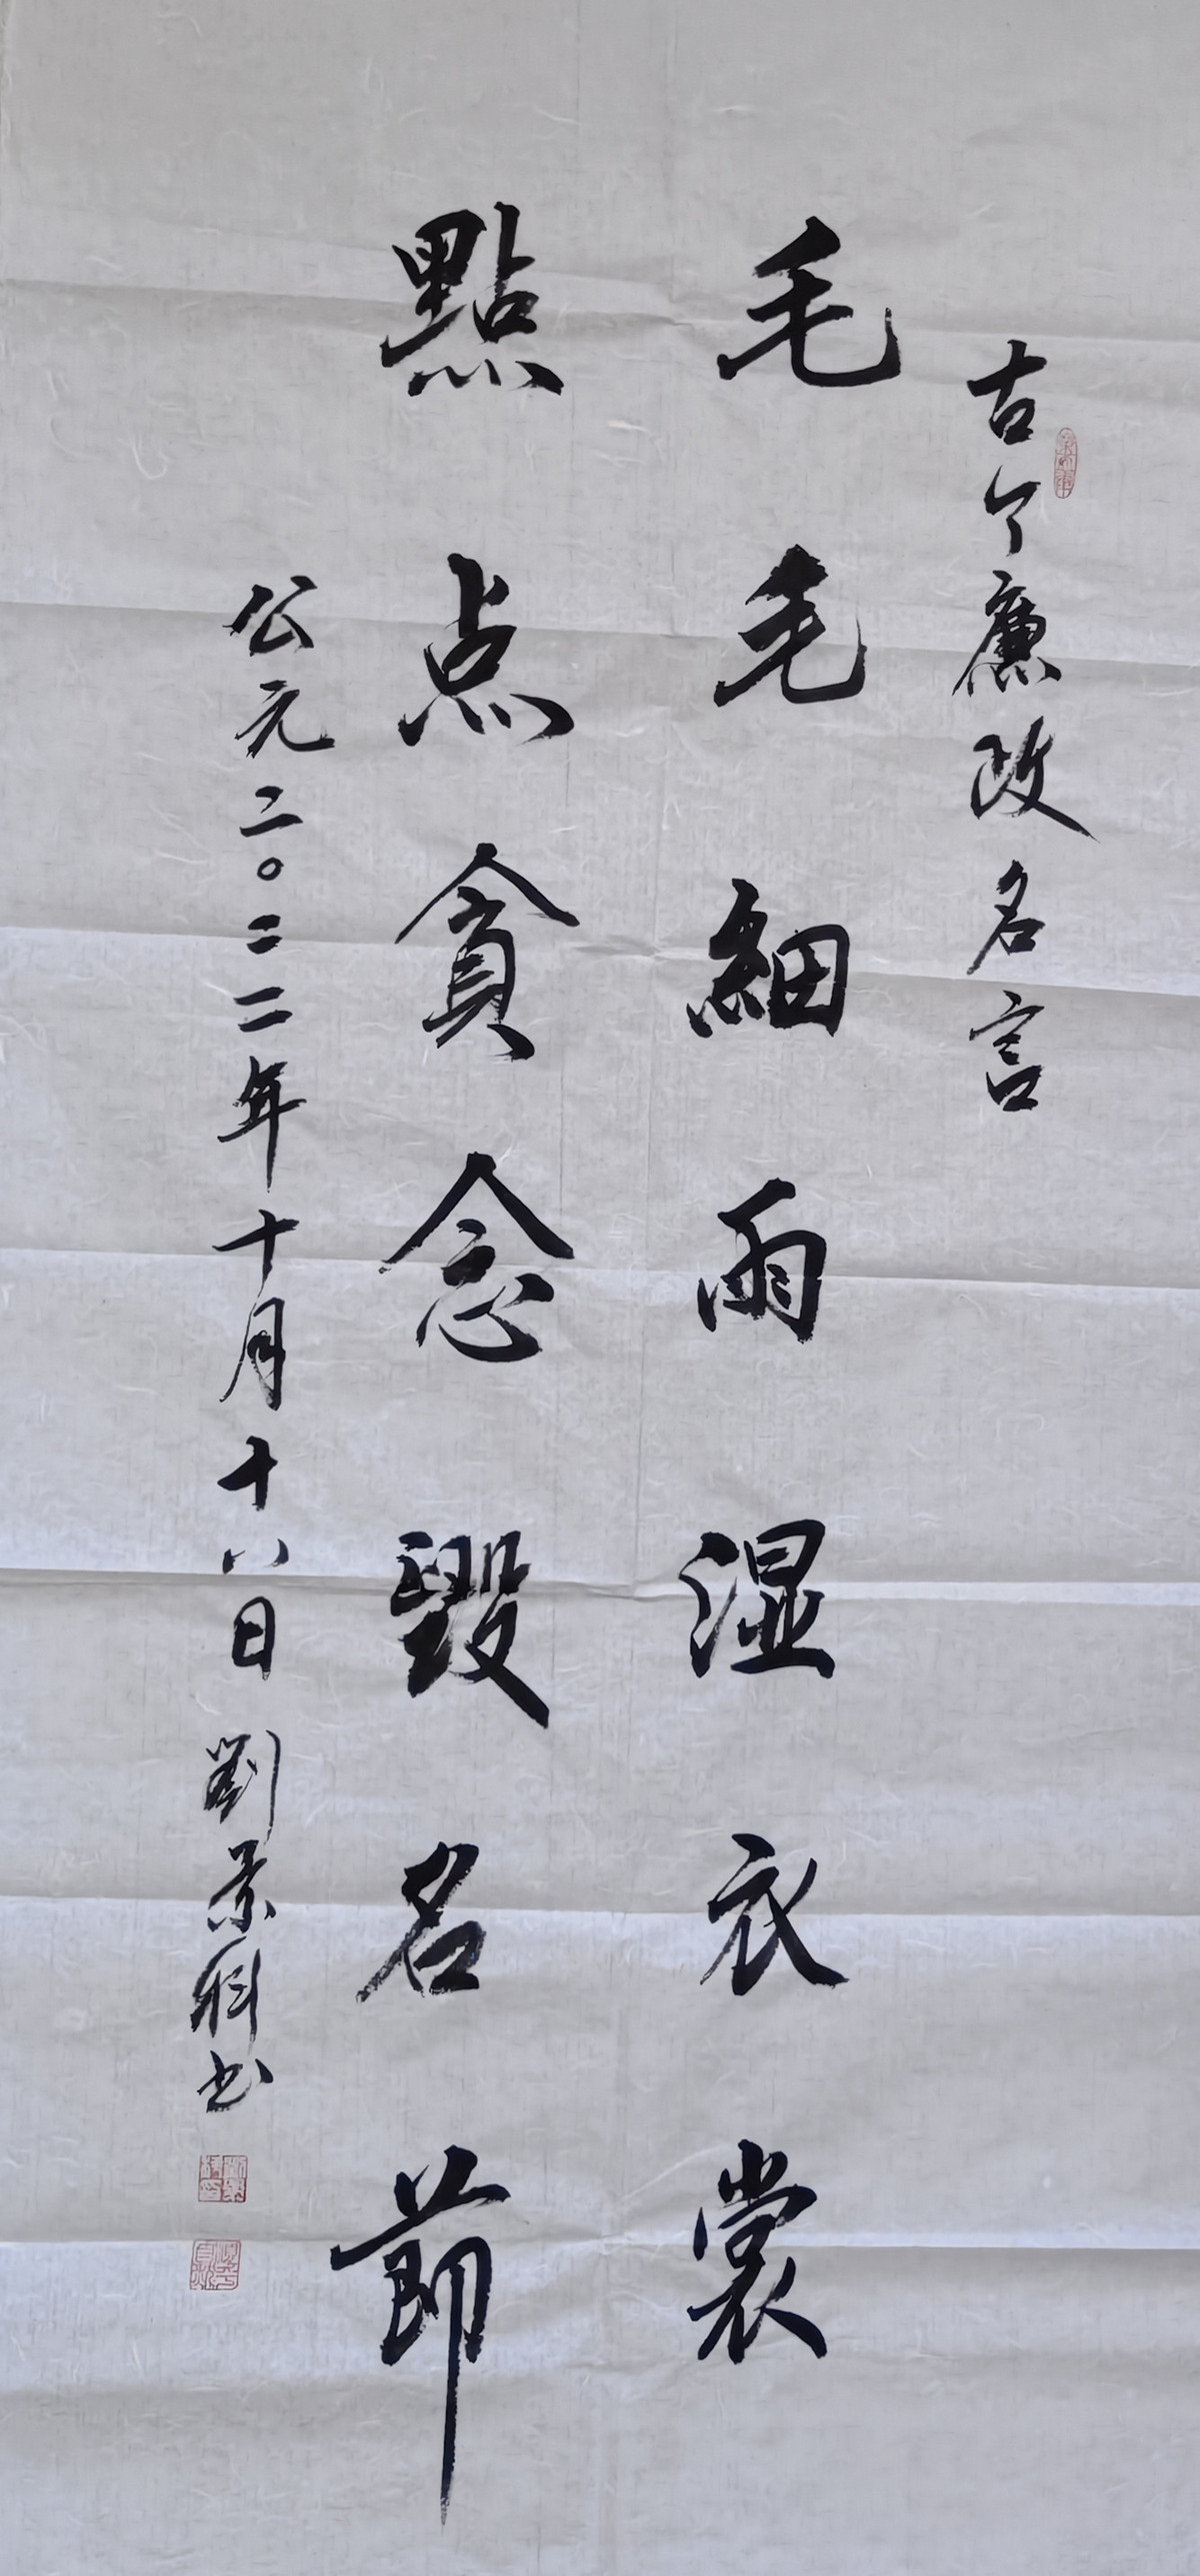 古今廉政名言
毛毛細雨湿衣裳
點点貪念毀名節
公元二〇二二年十月十八日 劉景科书